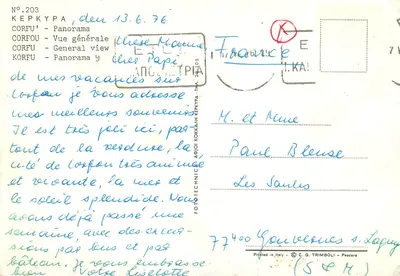 Nº.203
ΚΕΡΚΥΡΑ, den 13.6.76
CORFU' - Panorama
CORFOU - Vue générale
CORFU - General view
KORFU - Panorama
chère Mamie,
cher Papi,
de mes vacances sur
Corfou je vous adresse
mes meilleurs souvenirs.
Il est très joli ici, par-
tout de la verdure, la
cité de Corfou très animée
et vivante, la mer et
le soleil splendide. Nous
avons déjà passé une
semaine, avec des excur-
sions par bus et par
bâteau. Je vous embrasse
bien Votre Liselotte
France
M. et Mme
Paul Blense
Les Saules
77400 Gouvernes s/Lagny
(S. et M.)
Printed in Italy - © C. G. TRIMBOLI - Pescara